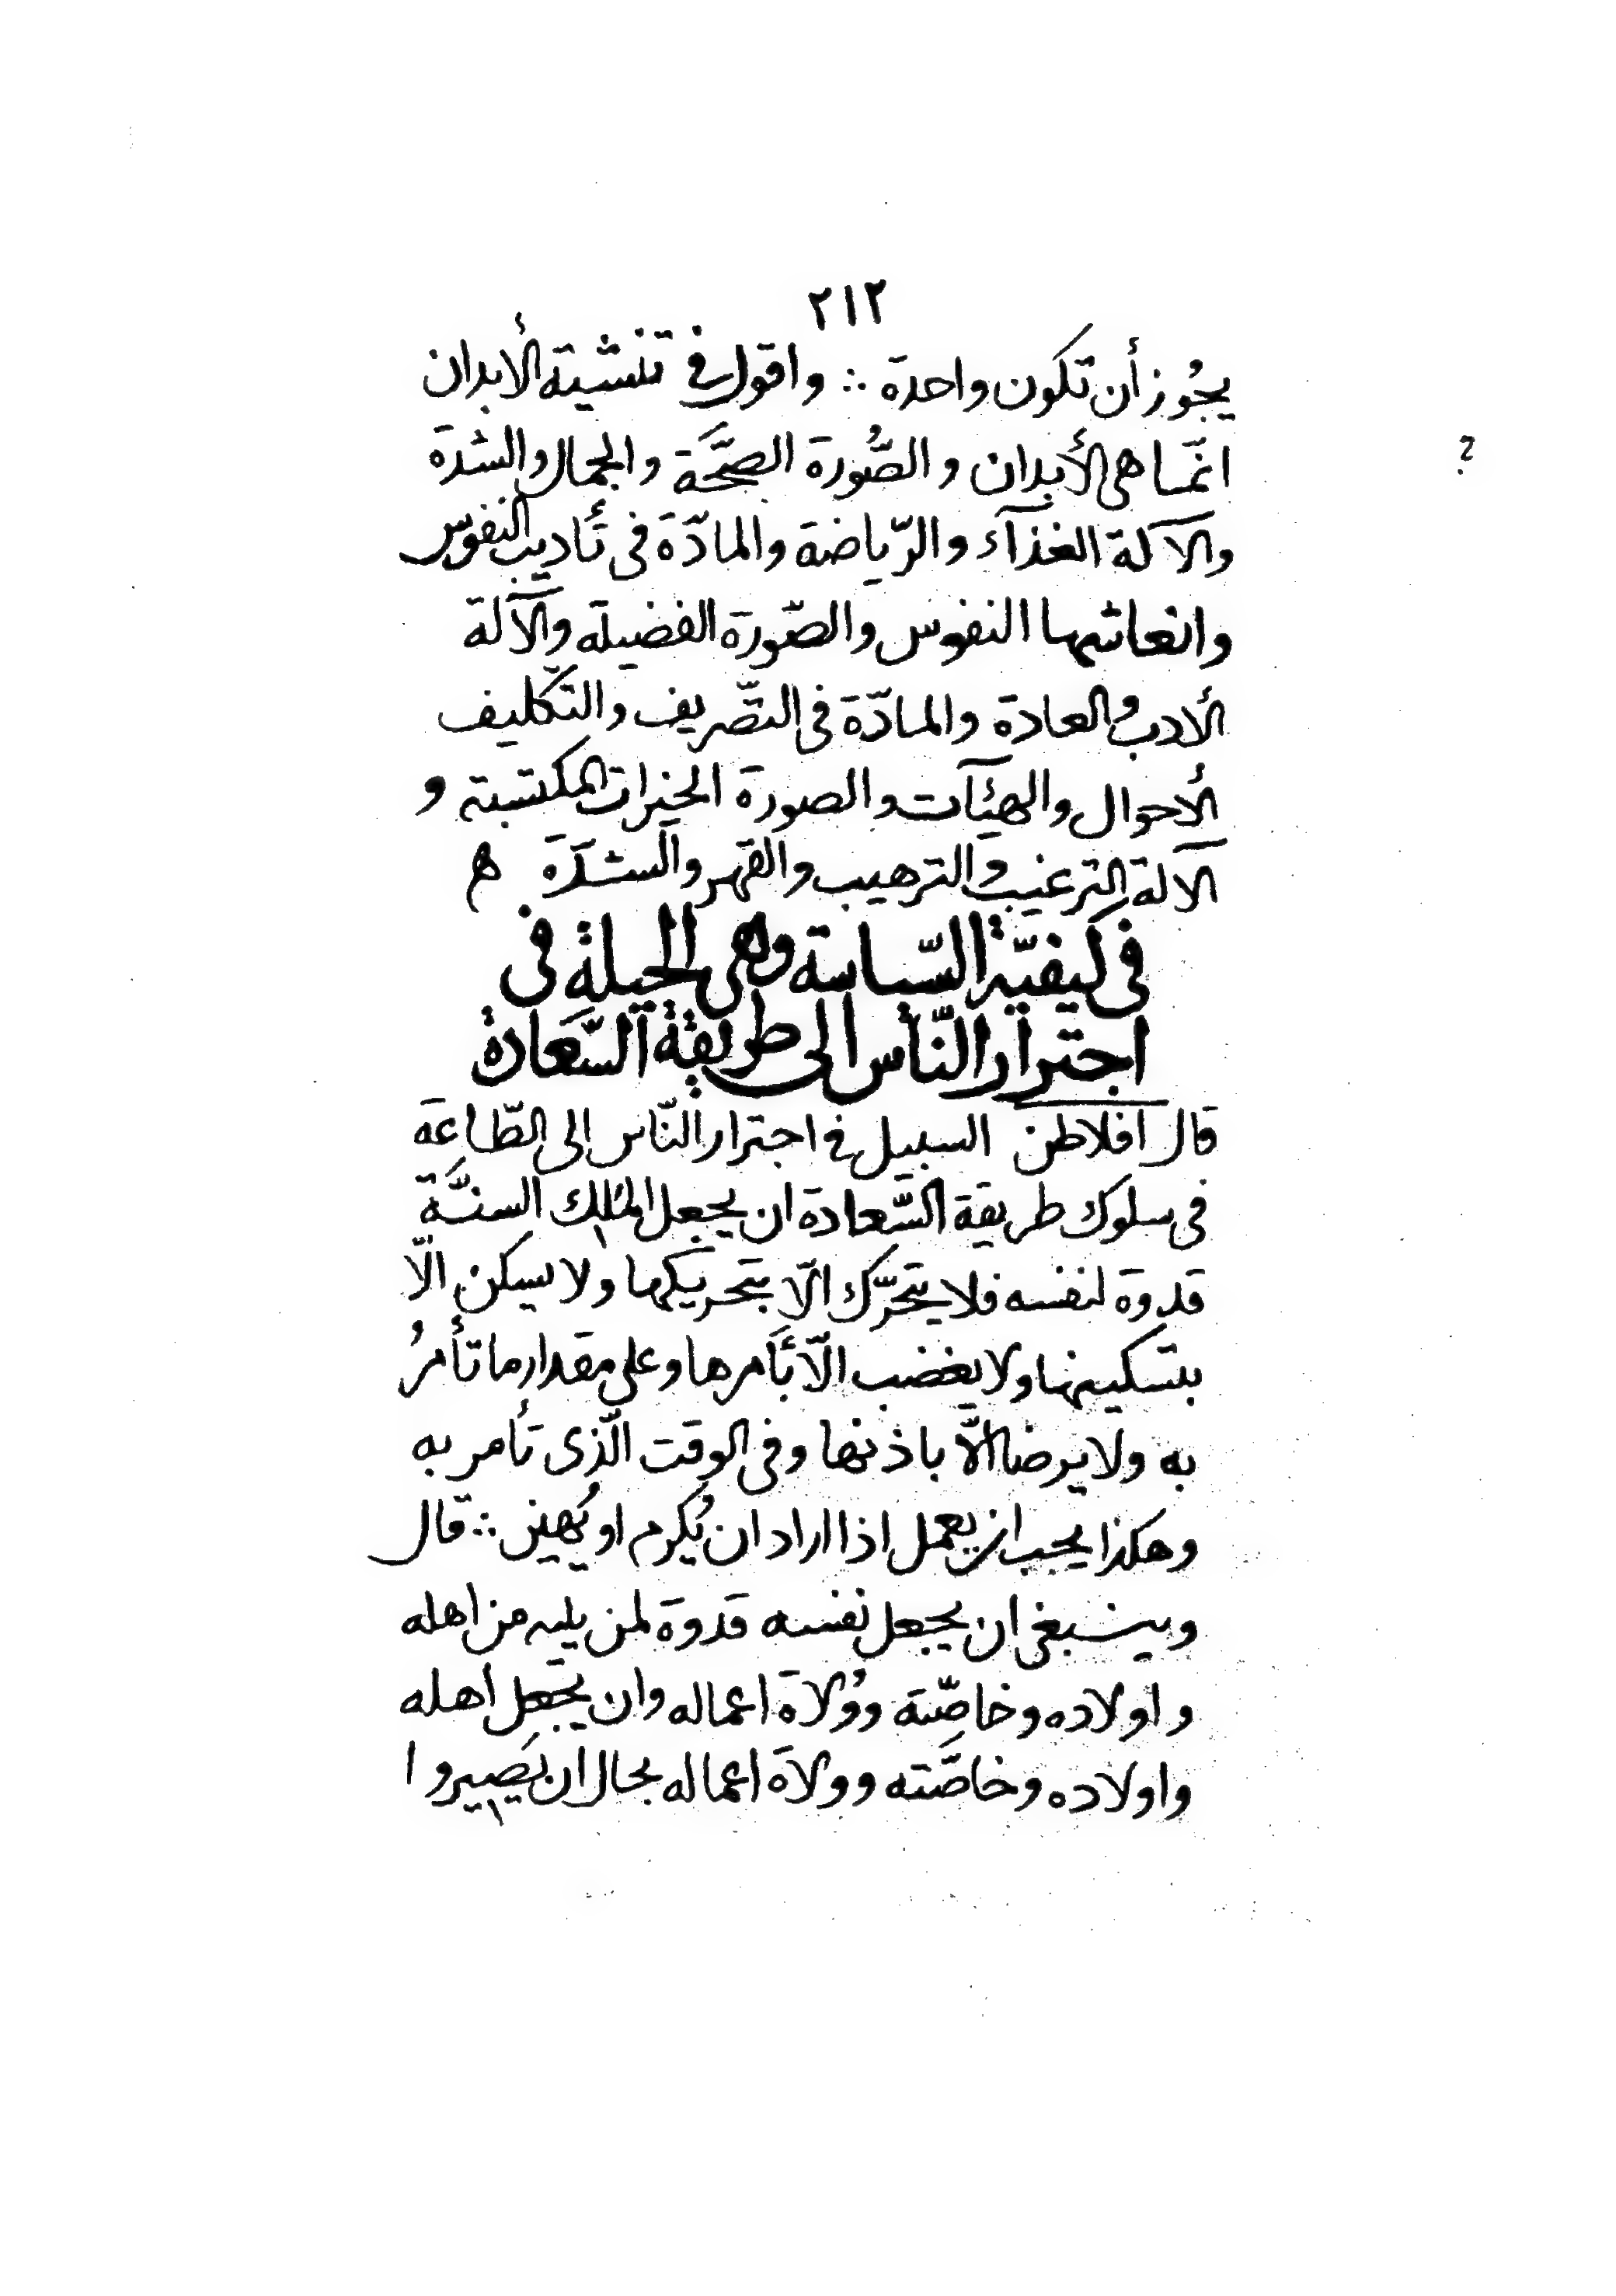 ٢١٢
يجُوز أن تكون واحدة ∴ واقول في تنشية الأبدان
انّما هي الأبدان والصُّورة الصحَّة والجمال والشدّة
والآلة الغذآء والرّياضة والمادّة في تأديب النفوس
وانعاشها النفوس والصّورة الفضيلة والآلة
الأدب والعادة والمادّة في التصّريف والتّكليف
الأحوال والهيآت والصورة الخيرات المكتسبة و
الآلة الترغيب والترهيب والقهر والشدّة ه
في كيفيّة السّياسة وهي الحيلة في
اجترار النّاس الى طريقة السّعادة
قال افلاطن السبيل في اجترار النّاس الى الطّاعة
في سلوك طريقة السَّعادة ان يجعل الملك السنَّة
قدوة لنفسه فلا يتحرّك الّا بتحريكها ولا يسكن الّا
بتسكينها ولا يغضب الّا بَأمرها وعلى مقدار ما تأمرُ
به ولا يرضا الّا باذنها وفي الوقت الّذي تأمر به
وهكذا يجب ان يعمل اذا اراد ان يُكرم او يُهين ∴ قال
وينبغي ان يجعل نفسه قدوة لمن يليه من اهله
واولاده وخاصّته ووُلاة اعماله وان يجعل اهله
واولاده وخاصَّته وولاة اعماله بحال ان يَصيروا
?